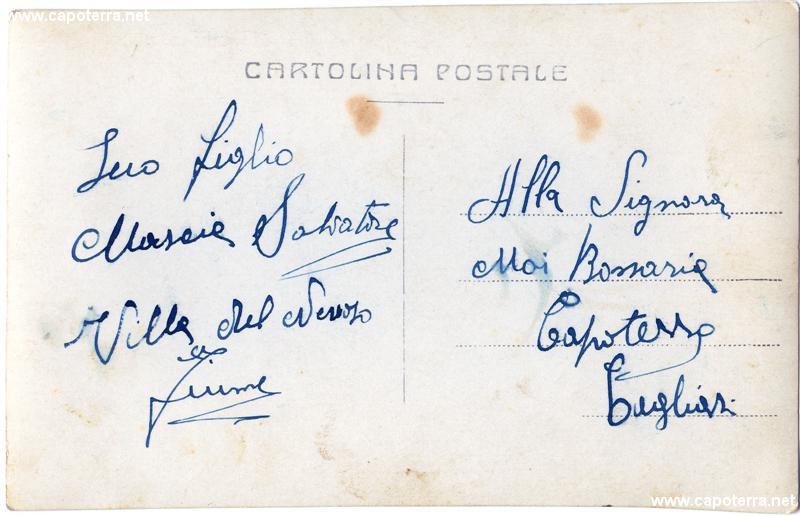 www.capoterra.net
CARTOLINA POSTALE
Suo figlio
Mascia Salvatore
Villa del Nevoso
Fiume
Alla Signora
Moi Bossaria
Capoterra
Cagliari
www.capoterra.net